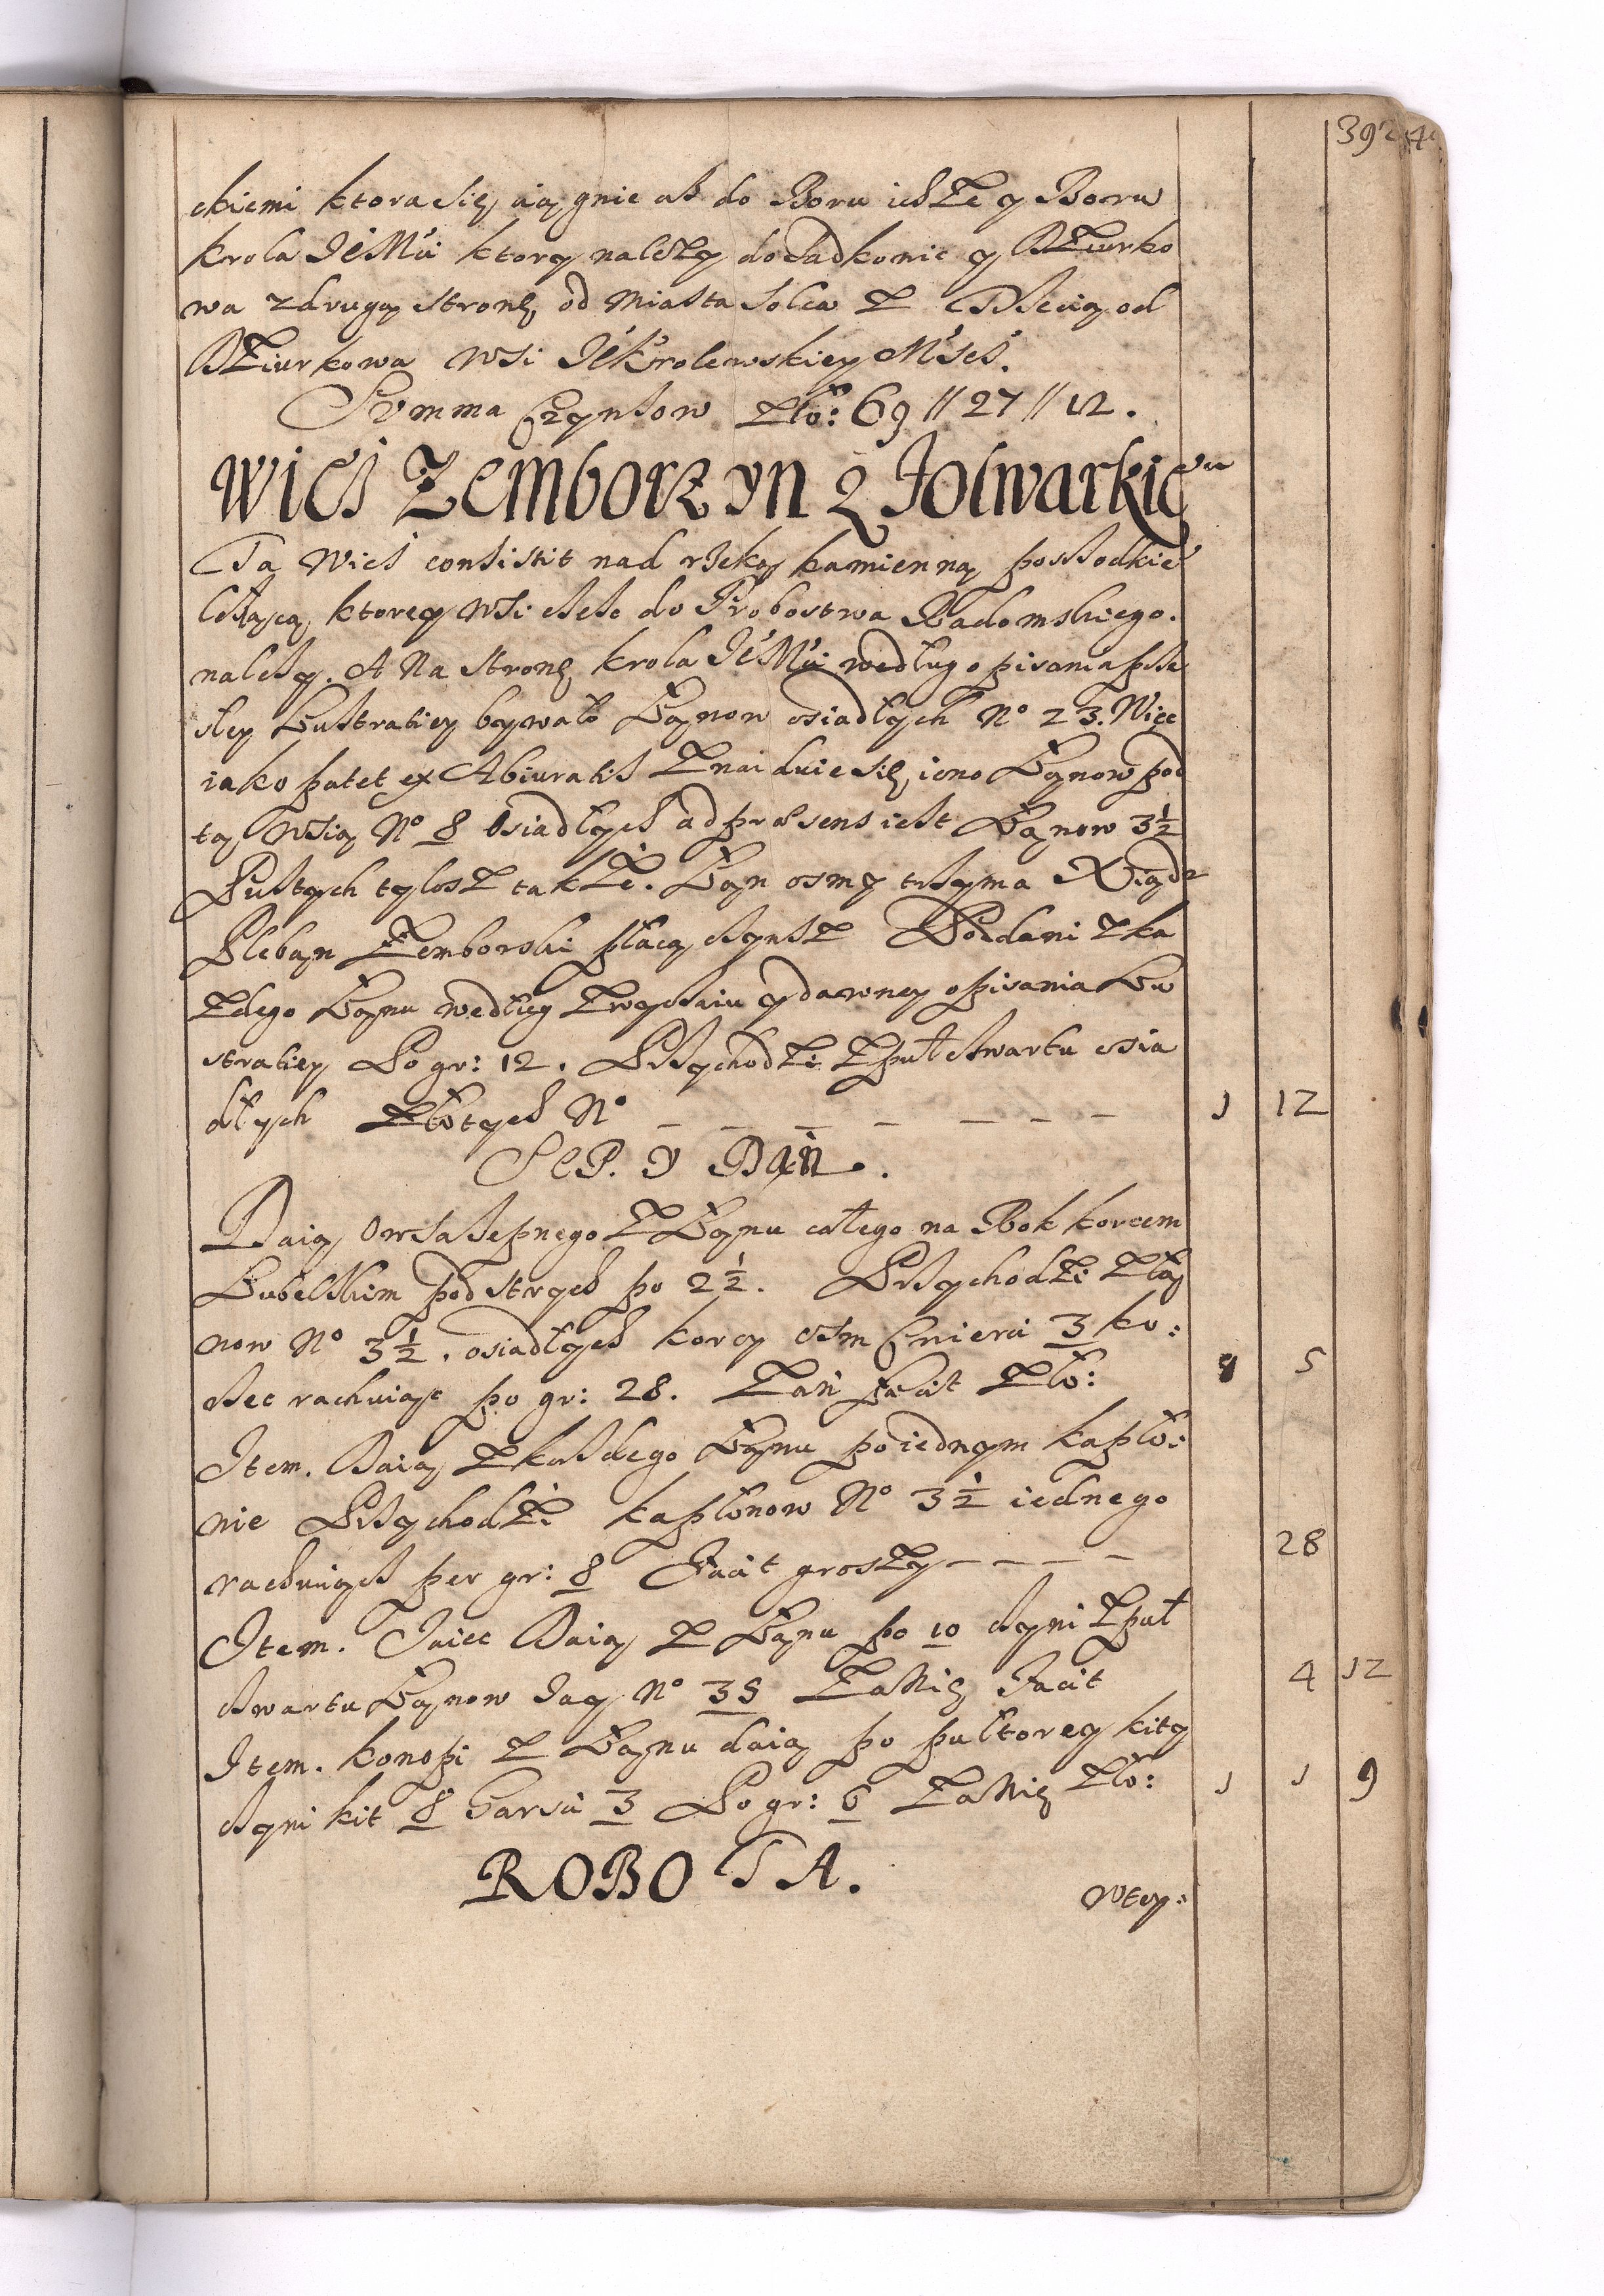 392
ckiemi ktora się ciągnie asz do Boru ieszZe y Boru
krola JéMći ktory należy do Sadkonic y DZiurko
wa z drugą stronę od Miasta Solca Z Częscią od
DZiurkowa wsi JéKrolewskiey Mści.
Summa Czynszow Zło: 69 // 27 // 12.
WIES ZEMBORZYN z Folwarkiem
Ta Wies consistit nad rzeką kamienną poszrodkiem
lężącą, ktorey wsi częsc do Probostwa Radomskiego.
należy. A Na stronę krola JéMći według opisania prze
szley Lustratiey bywało Łanow osiadłych No 23. Więc
iako patet ex Abiuratis Znaiduie się ieno Łanow pod
tą wsią No 8 Osiadłych ad præsens iest Łanow 3½
Pustych tylosZ takZe. Łan osmy trzyma Xiądz
Pleban Zemborski płacą czynsZ Poddani Zka
Zdego Łanu według Zwyczaiu y dawney opisania Lu
stratiey Po gr: 12. PrzychodZi Zpuł czwartu osia
dłych Złotych No — — — — — — — 1 12
SEP. Y DAN.
Daią Owsa sepnego Z Łanu całego na Rok korcem
Lubelskim pod strych po 2½. PrzychodZi Z Ła
now No 3½. osiadłych korcy ośm Cwierci 3 ko:
rzec rachuiąc po gr: 28. Zań facit Zło: 8 5
Item. Daią Z każdego Łanu po iednym kapło:
nie PrzychodZi kapłonow No 3½ iednego
rachuiąc per gr: 8 Facit grosZy — — — — 28
Item. Jaiec Daią Z Łanu po 10 czyni Zpuł
czwartu Łanow Jay No 35 Za Nie Facit 4 12
Item. konopi Z Łanu daią po pułtorey kity
czyni kit 8 Garsci 3 Po gr: 6 Za Nie Zło: 1 1 9
ROBOTA.
wtey: